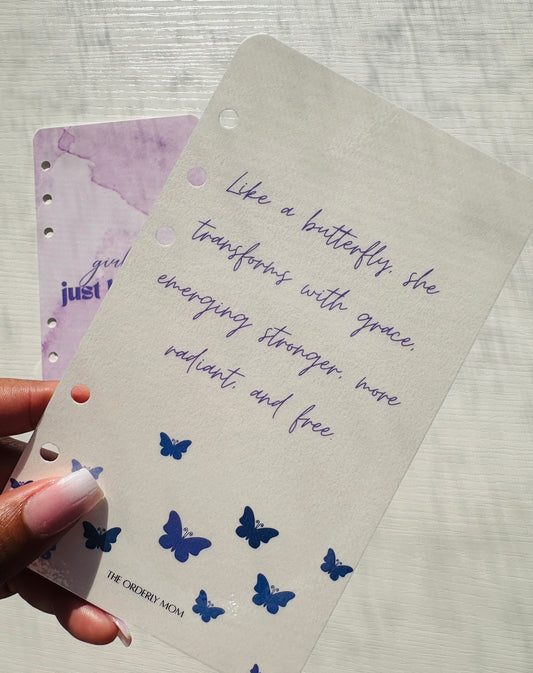 Like a butterfly, she
transforms with grace,
emerging stronger, more
radiant, and free.
THE ORDERLY MOM
just